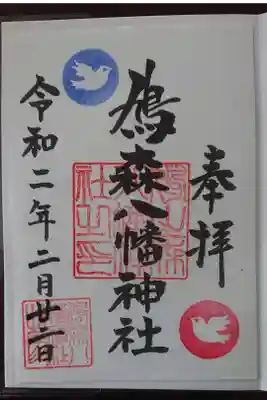 奉拝
鳩森八幡神社
令和二年二月廿二日